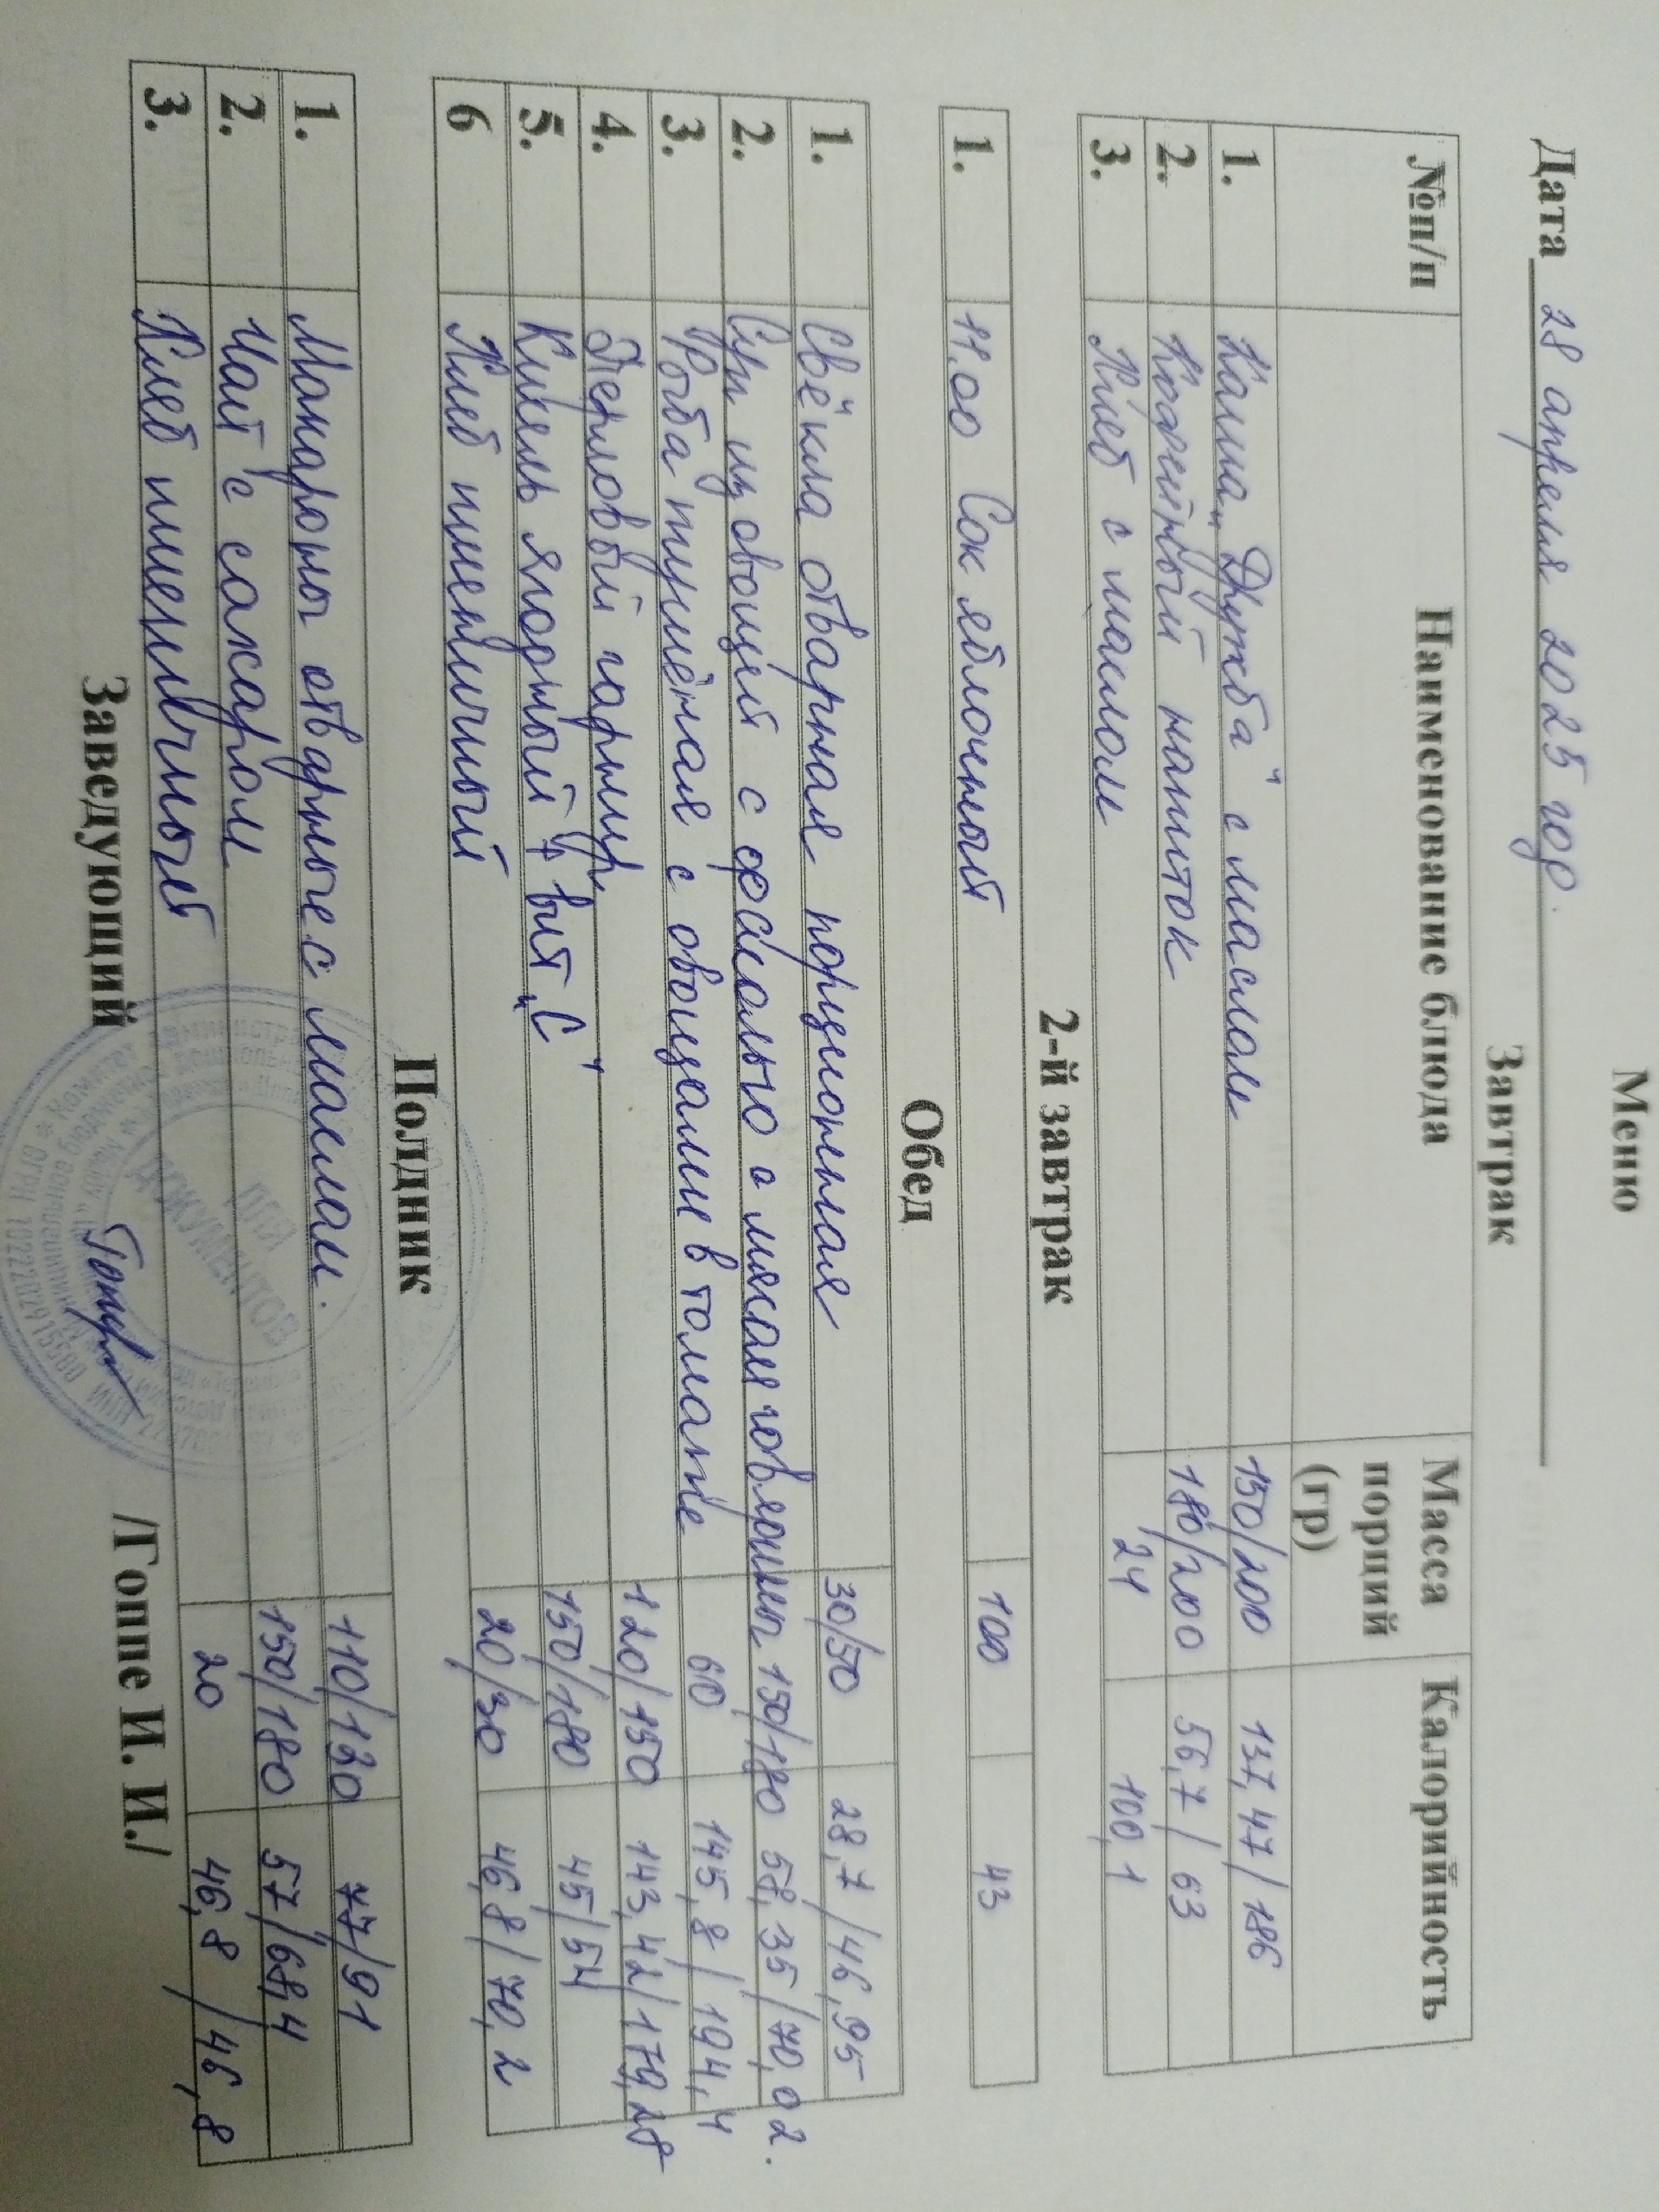 Меню
Дата 28 апреля 2025 год.
Завтрак
№п/п Наименование блюда Масса порций (гр) Калорийность
1. Каша „Дружба“ с маслом 150/200 137,47/186
2. Кофейный напиток 180/200 56,7/63
3. Хлеб с маслом 24 100,1
2-й завтрак
1. 11.00 Сок яблочный 100 43
Обед
1. Свёкла отварная порционная 30/50 28,7/46,95
2. Суп из овощей с фасолью с мясом говядины 150/180 58,35/70,02.
3. Рыба тушёная с овощами в томате 60 145,8/194,4
4. Перловый гарнир 120/150 143,42/179,28
5. Кисель ягодный + вит „С“ 150/180 45/54
6 Хлеб пшеничный 20/30 46,8/70,2
Полдник
1. Макароны отварные с маслом. 110/130 77/91
2. Чай с сахаром 150/180 57/68,4
3. Хлеб пшеничный 20 46,8/46,8
Заведующий /Гоппе И. И./
ДЛЯ
ДОКУМЕНТОВ